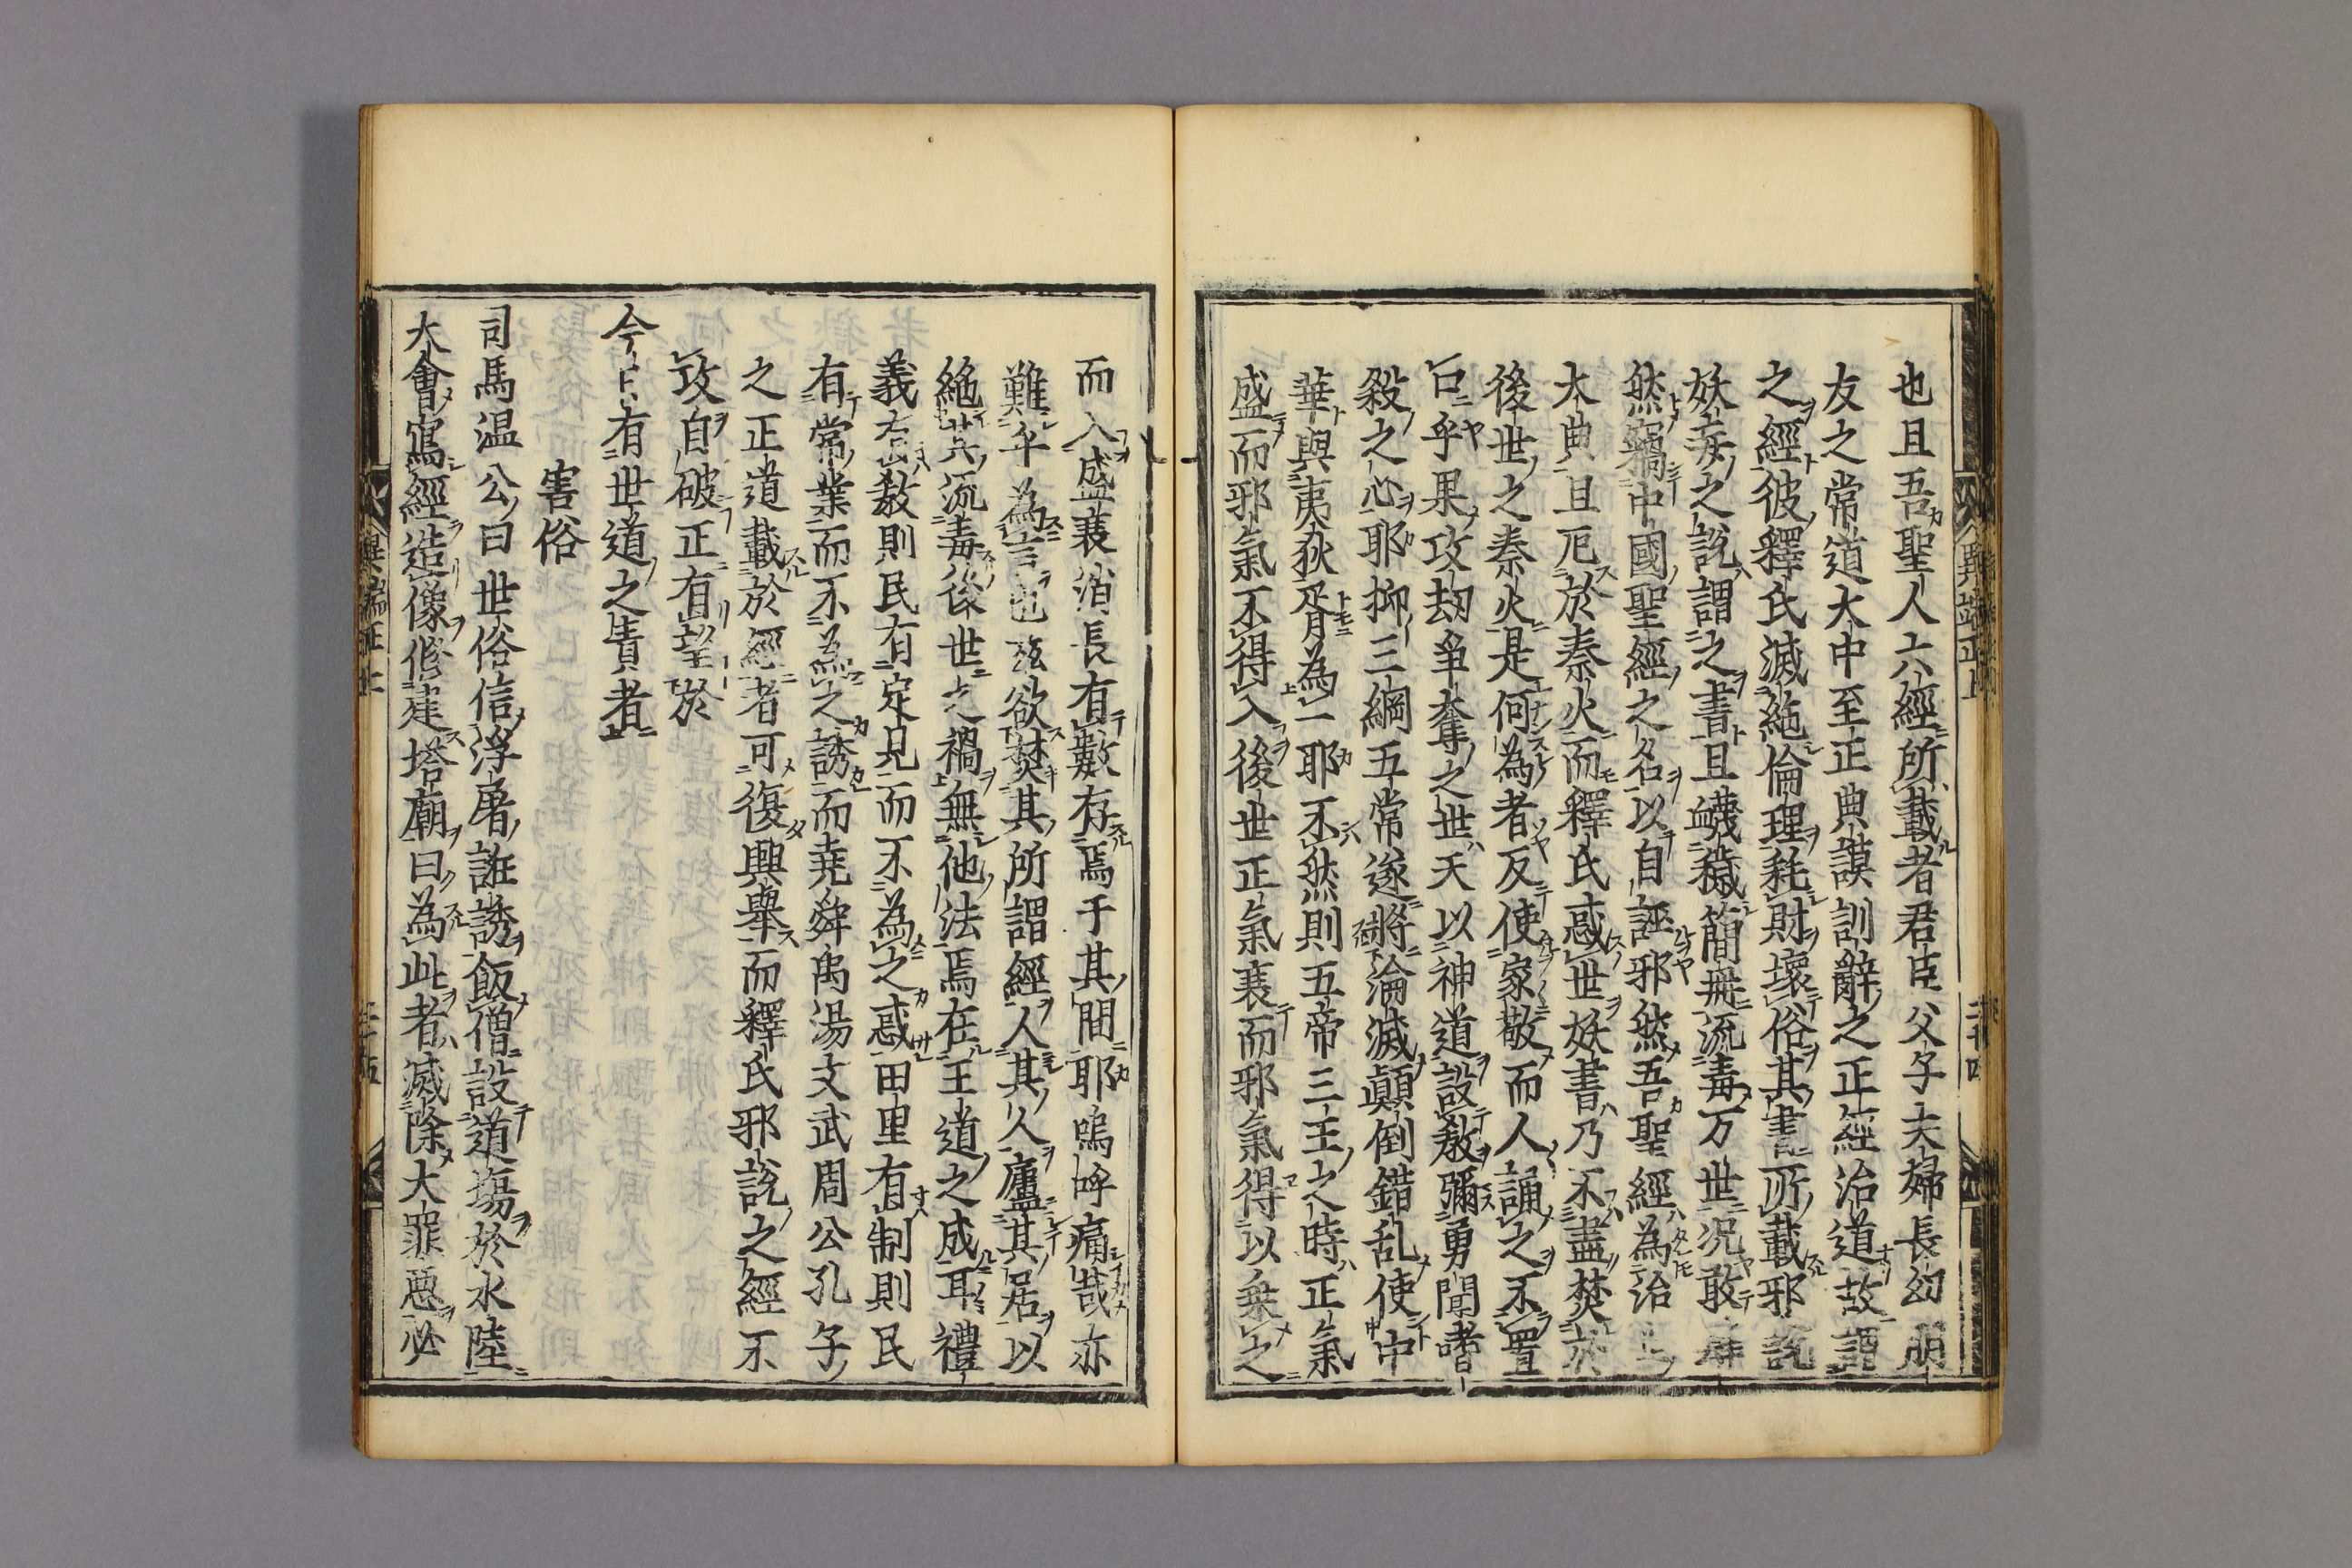 也且吾聖人六經所載者君臣父子夫婦長幼朋
友之常道大中至正典謨訓辭之正經治道故謂
之經彼釋氏滅絶倫理耗財壞俗其書所載邪説
妖妄之説謂之書且衊穢簡冊流毒万世况敢
然竊中國聖經之名以自誣邪然吾聖經為治
大典且厄於秦火而釋氏惑世妖書乃不盡焚於
後世之秦火是何為者反使家敬而人誦之不置
口乎果攻刼爭奪之世天以神道設教彌勇閗嗜
殺之心耶抑三綱五常遂將淪滅顛倒錯乱使中
華與夷狄胥為一耶不然則五帝三王之時正氣
盛而邪氣不得入後世正氣衰而邪氣得以乗之
而入盛衰消長有數存焉于其間耶嗚呼痛哉亦
難乎為言也玆欲焚其所謂經人其人廬其居以
絶其流毒後世之禍無他法焉在王道之成耳禮
義有教則民有定見而不為之惑田里有制則民
有常業而不為之誘而堯舜禹湯文武周公孔子
之正道載於經者可復興舉而釋氏邪説之經不
攻自破正有望於
今日有世道之責者
害俗
司馬温公曰世俗信浮屠誑誘飯僧設道塲於水陸
大會寫經造像修建塔廟曰為此者滅除大罪惡必
異端正上